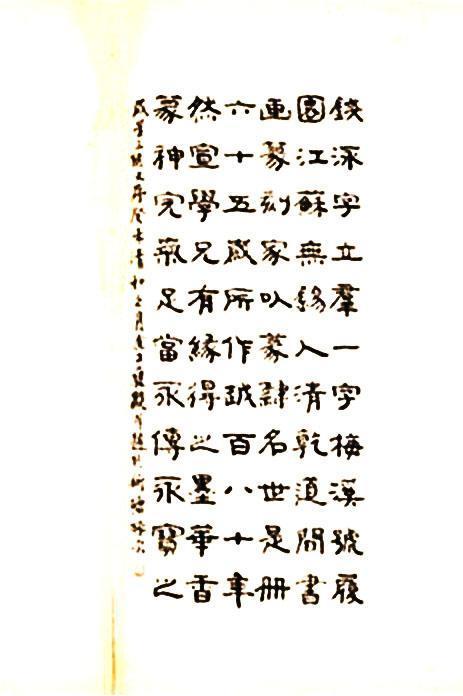 錢泳字立羣一字梅溪號履
園江蘇無錫人清乾道間書
画篆刻家以篆隸名世是冊
六十五歲所作越百八十年
然宣學兄有緣得之墨華香
篆神完氣足當永傳永寶之
癸未清和之月